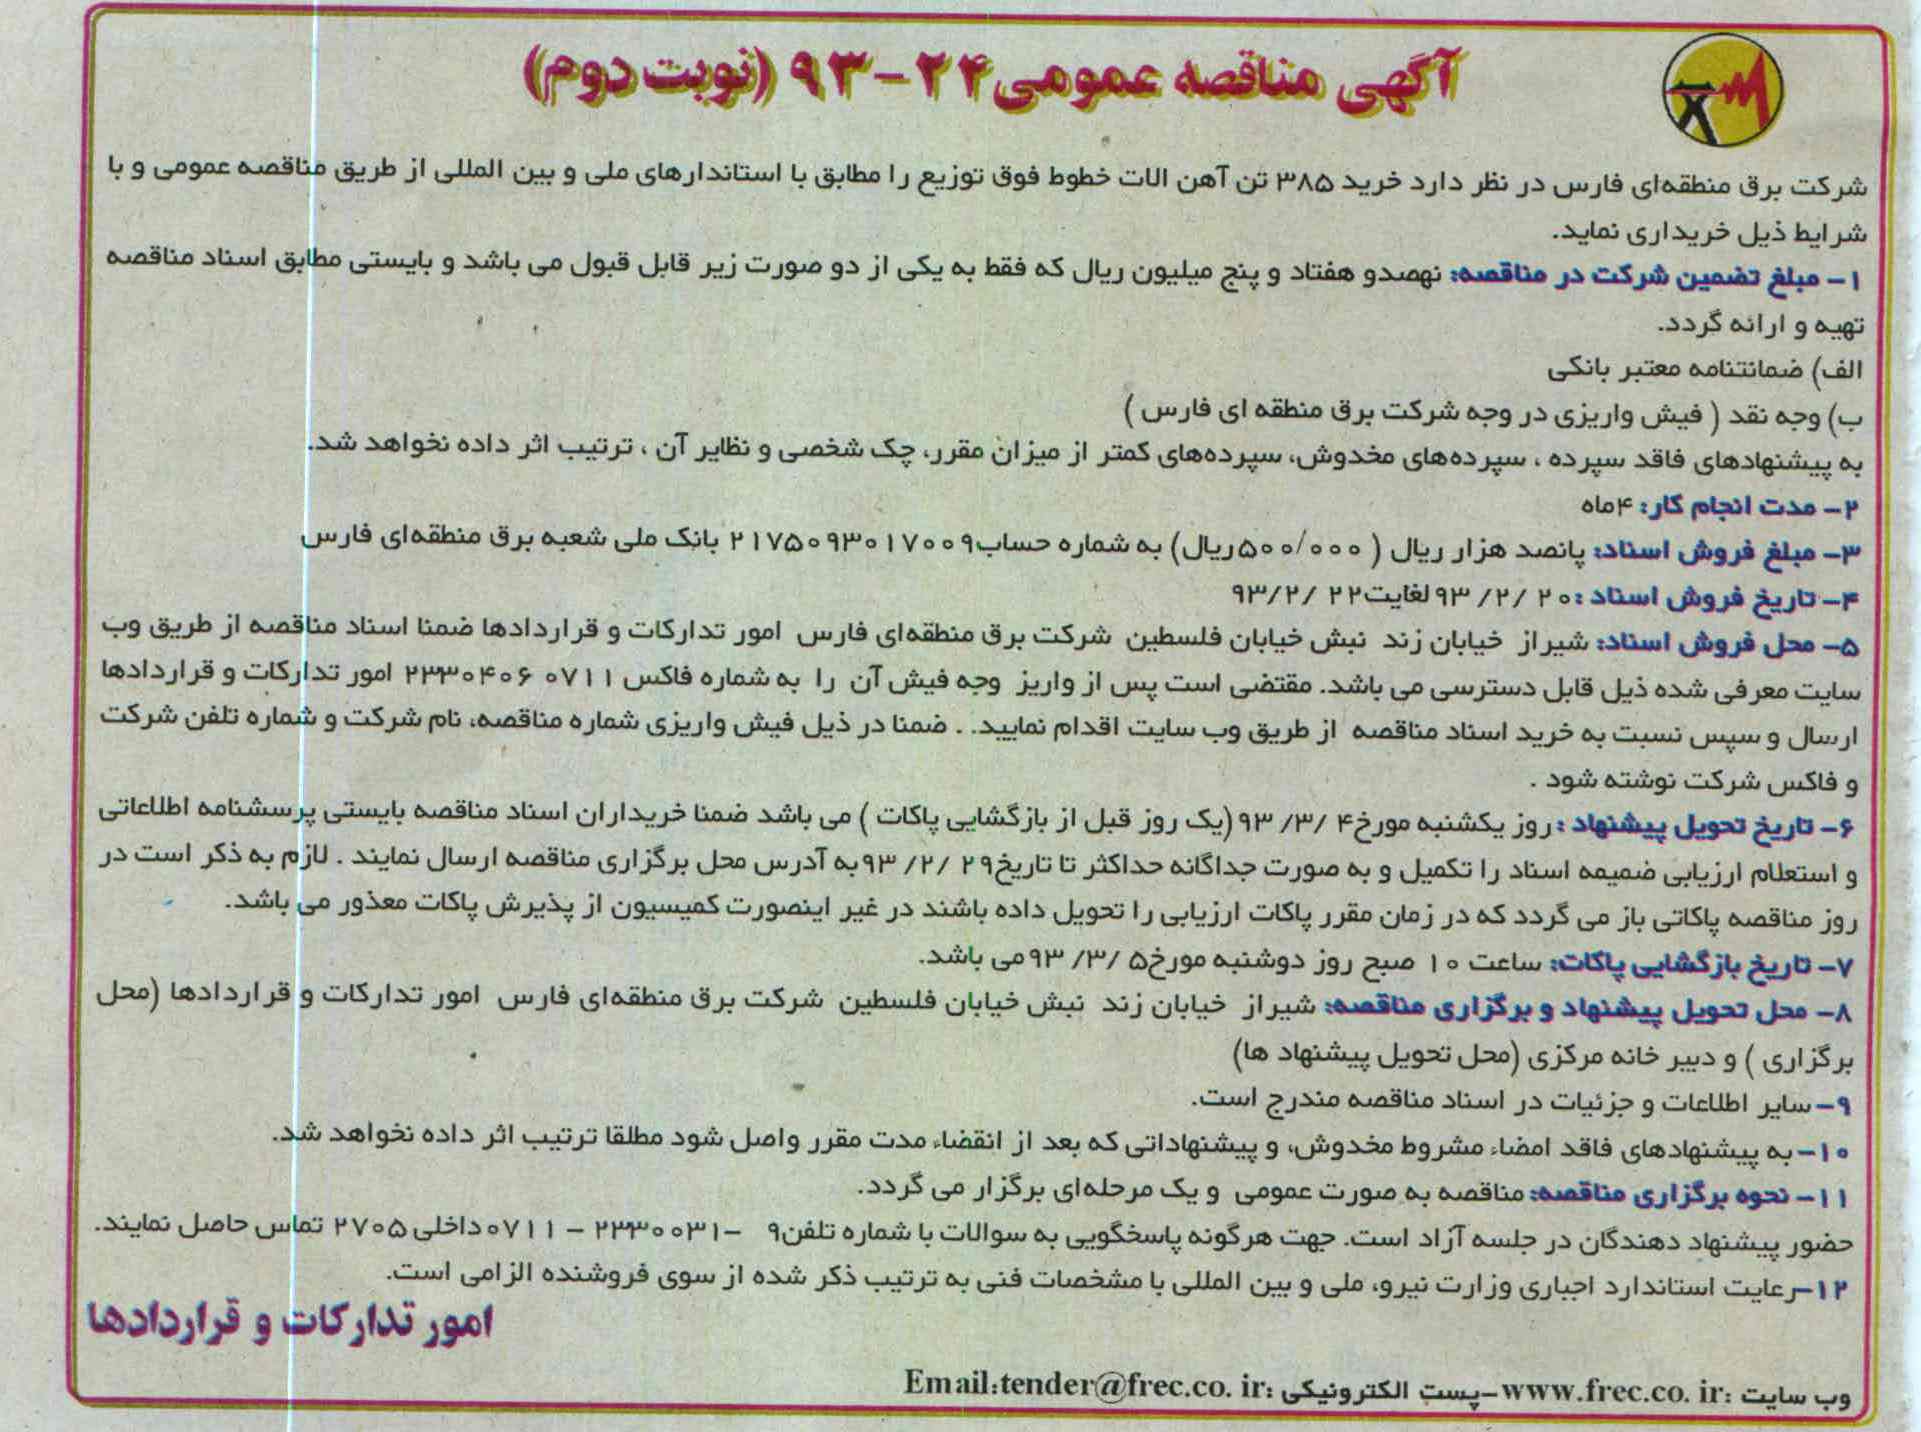 آگهی مناقصه عمومی ۲۴-۹۳ (نوبت دوم)
شرکت برق منطقه‌ای فارس در نظر دارد خرید ۳۸۵ تن آهن الات خطوط فوق توزیع را مطابق با استاندارهای ملی و بین المللی از طریق مناقصه عمومی و با
شرایط ذیل خریداری نماید.
۱- مبلغ تضمین شرکت در مناقصه: نهصدو هفتاد و پنج میلیون ریال که فقط به یکی از دو صورت زیر قابل قبول می باشد و بایستی مطابق اسناد مناقصه
تهیه و ارائه گردد.
الف) ضمانتنامه معتبر بانکی
ب) وجه نقد ( فیش واریزی در وجه شرکت برق منطقه ای فارس )
به پیشنهادهای فاقد سپرده ، سپرده‌های مخدوش، سپرده‌های کمتر از میزان مقرر، چک شخصی و نظایر آن ، ترتیب اثر داده نخواهد شد.
۲- مدت انجام کار: ۴ماه
۳- مبلغ فروش اسناد: پانصد هزار ریال ( ۵۰۰/۰۰۰ریال) به شماره حساب۲۱۷۵۰۹۳۰۱۷۰۰۹ بانک ملی شعبه برق منطقه‌ای فارس
۴- تاریخ فروش اسناد :۲۰ /۲/ ۹۳ لغایت۲۲ /۲/ ۹۳
۵- محل فروش اسناد: شیراز خیابان زند نبش خیابان فلسطین شرکت برق منطقه‌ای فارس امور تدارکات و قراردادها ضمنا اسناد مناقصه از طریق وب
سایت معرفی شده ذیل قابل دسترسی می باشد. مقتضی است پس از واریز وجه فیش آن را به شماره فاکس ۰۷۱۱ ۲۳۳۰۴۰۶ امور تدارکات و قراردادها
ارسال و سپس نسبت به خرید اسناد مناقصه از طریق وب سایت اقدام نمایید. . ضمنا در ذیل فیش واریزی شماره مناقصه، نام شرکت و شماره تلفن شرکت
و فاکس شرکت نوشته شود .
۶- تاریخ تحویل پیشنهاد : روز یکشنبه مورخ۴ /۳/ ۹۳ (یک روز قبل از بازگشایی پاکات ) می باشد ضمنا خریداران اسناد مناقصه بایستی پرسشنامه اطلاعاتی
و استعلام ارزیابی ضمیمه اسناد را تکمیل و به صورت جداگانه حداکثر تا تاریخ۲۹ /۲/ ۹۳به آدرس محل برگزاری مناقصه ارسال نمایند . لازم به ذکر است در
روز مناقصه پاکاتی باز می گردد که در زمان مقرر پاکات ارزیابی را تحویل داده باشند در غیر اینصورت کمیسیون از پذیرش پاکات معذور می باشد.
۷- تاریخ بازگشایی پاکات: ساعت ۱۰ صبح روز دوشنبه مورخ۵ /۳/ ۹۳می باشد.
۸- محل تحویل پیشنهاد و برگزاری مناقصه: شیراز خیابان زند نبش خیابان فلسطین شرکت برق منطقه‌ای فارس امور تدارکات و قراردادها (محل
برگزاری ) و دبیر خانه مرکزی (محل تحویل پیشنهاد ها)
۹-سایر اطلاعات و جزئیات در اسناد مناقصه مندرج است.
۱۰- به پیشنهادهای فاقد امضاء مشروط مخدوش، و پیشنهاداتی که بعد از انقضاء مدت مقرر واصل شود مطلقا ترتیب اثر داده نخواهد شد.
۱۱- نحوه برگزاری مناقصه: مناقصه به صورت عمومی و یک مرحله‌ای برگزار می گردد.
حضور پیشنهاد دهندگان در جلسه آزاد است. جهت هرگونه پاسخگویی به سوالات با شماره تلفن۹ -۲۳۳۰۰۳۱ - ۰۷۱۱داخلی ۲۷۰۵ تماس حاصل نمایند.
۱۲-رعایت استاندارد اجباری وزارت نیرو، ملی و بین المللی با مشخصات فنی به ترتیب ذکر شده از سوی فروشنده الزامی است.
امور تدارکات و قراردادها
وب سایت :www.frec.co. ir-پست الکترونیکی :Email:tender@frec.co. ir